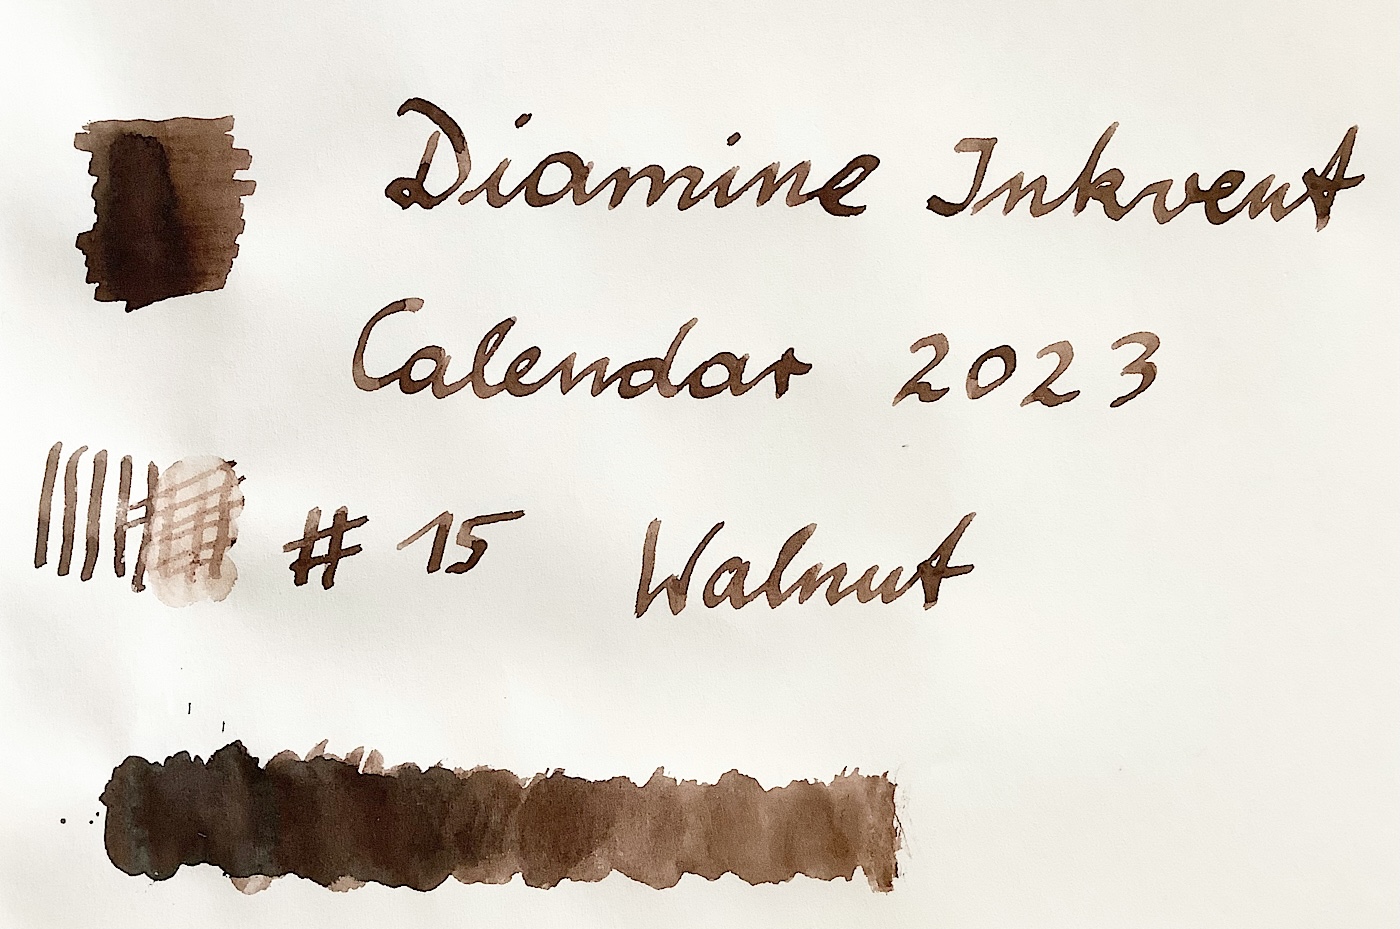 Diamine Inkvent
Calendar 2023
# 15 Walnut